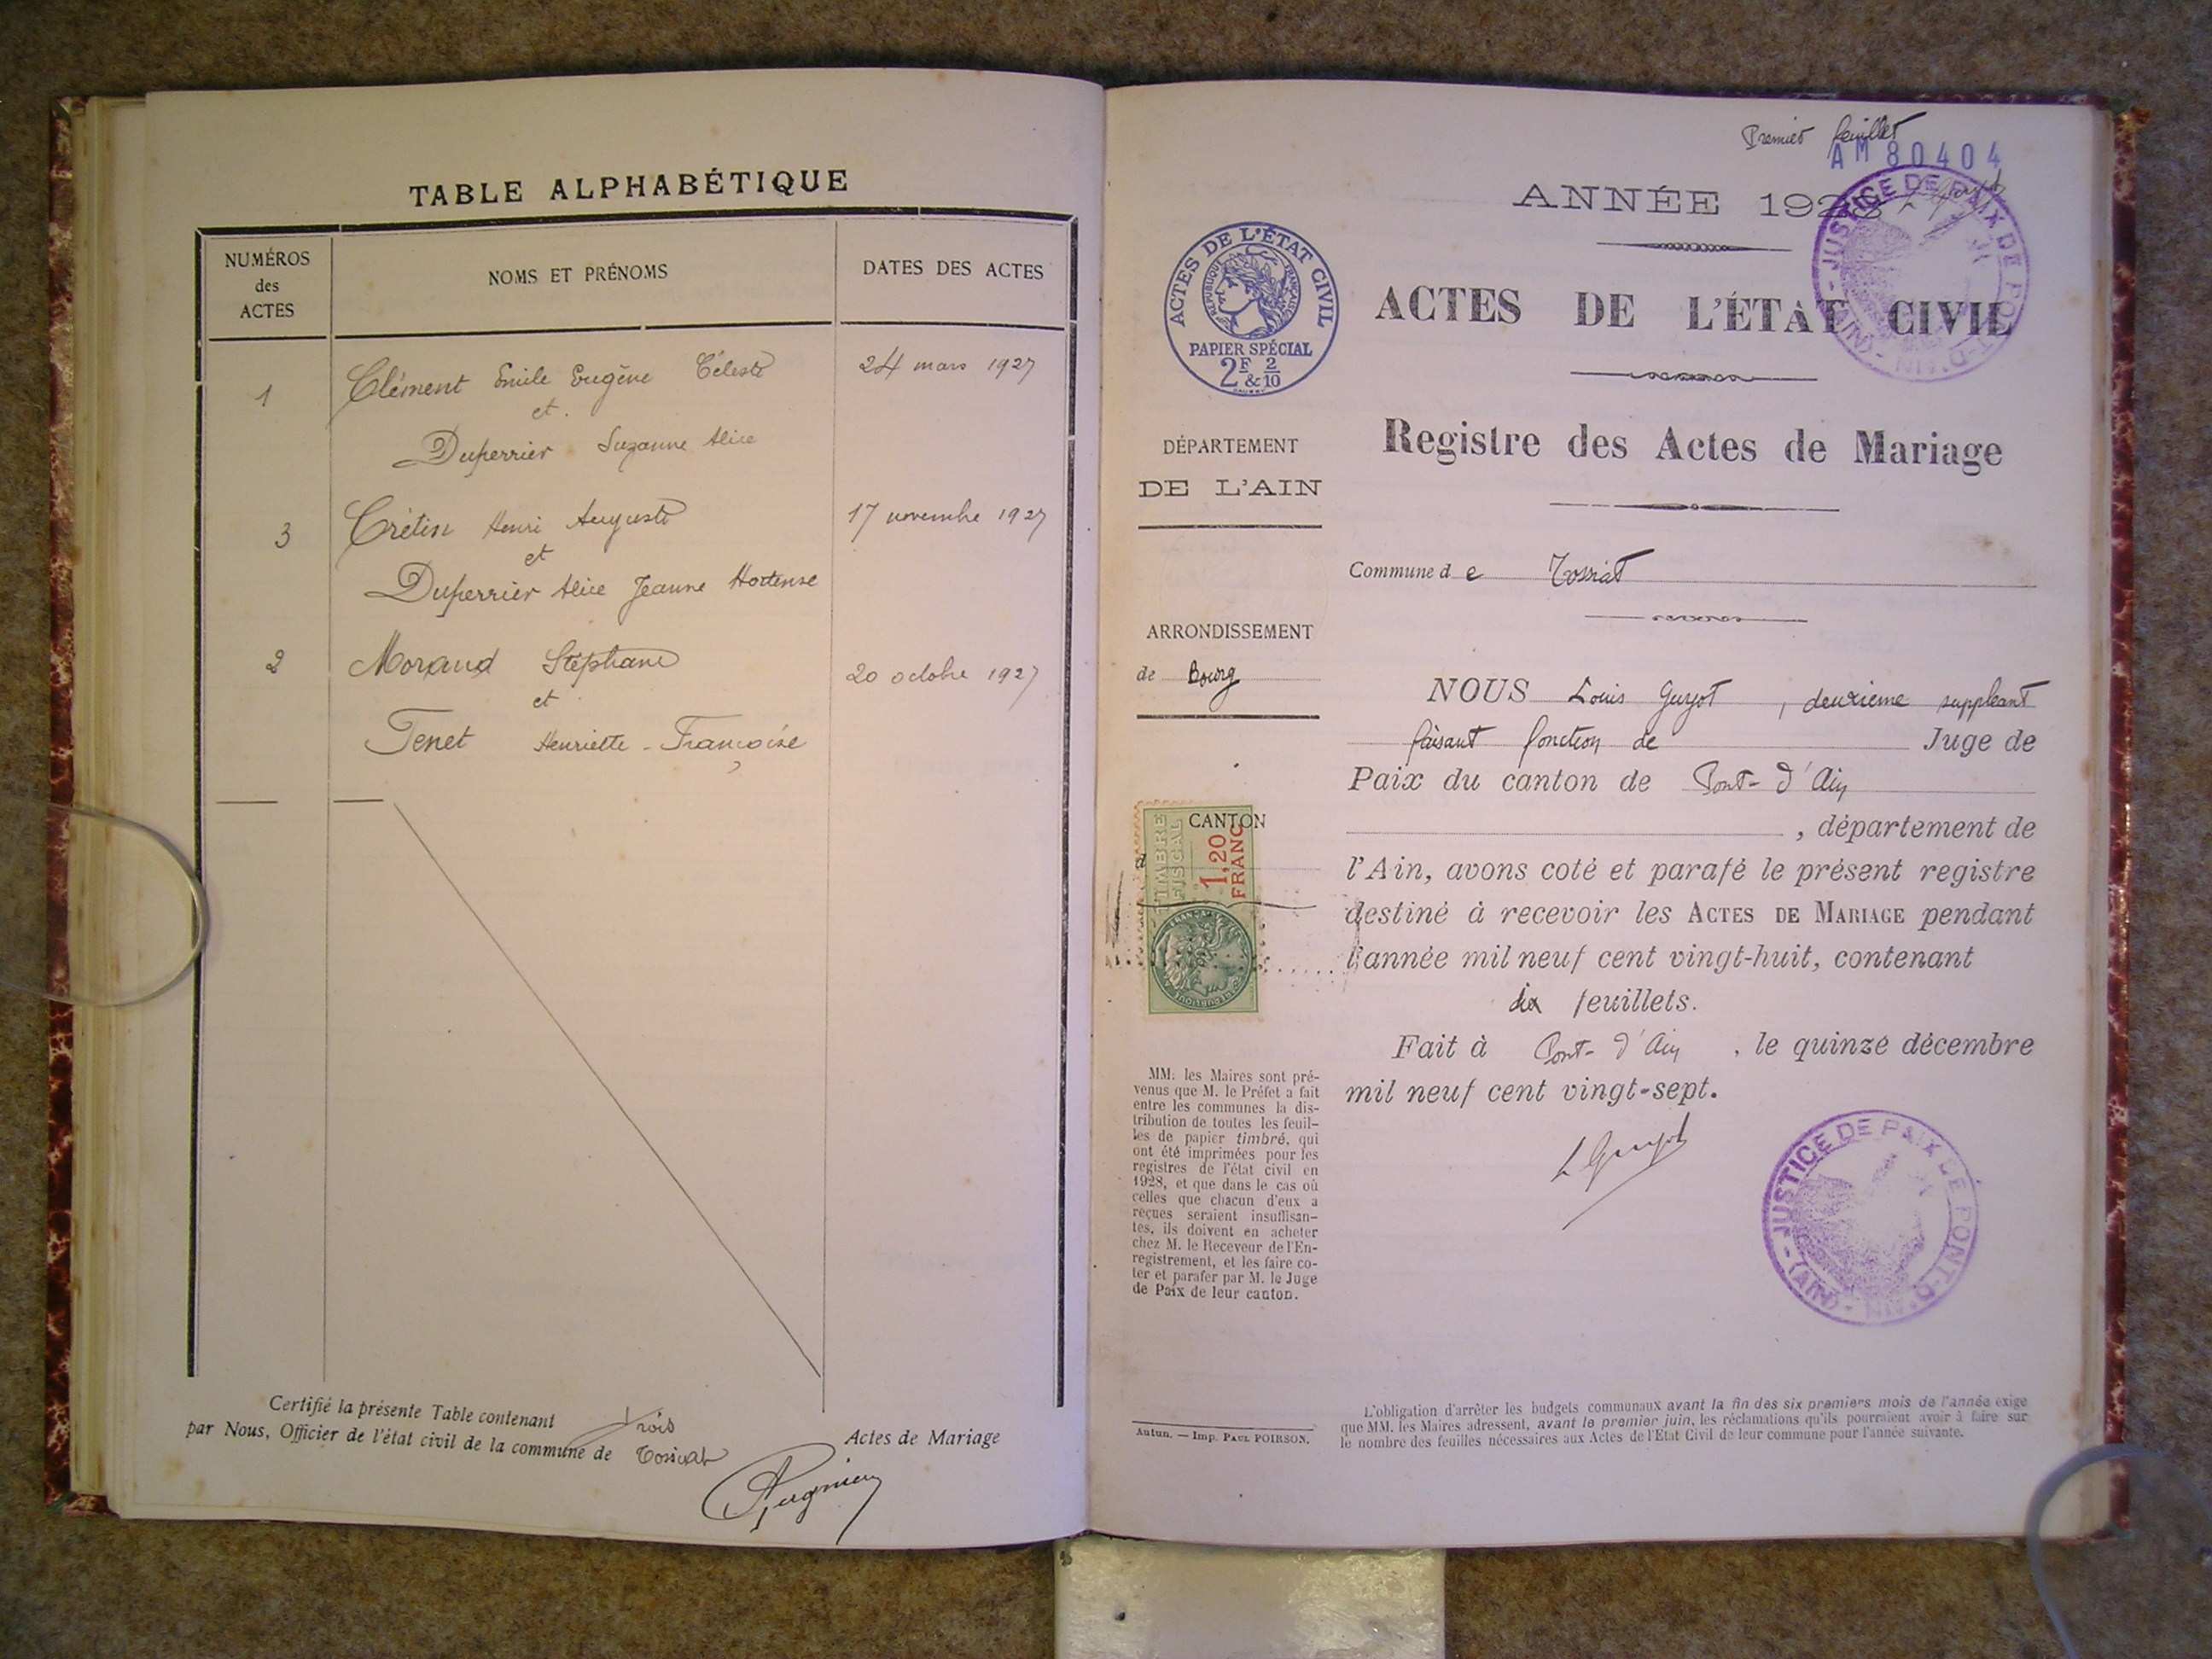 TABLE ALPHABÉTIQUE
NUMÉROS
des
ACTES
NOMS ET PRÉNOMS
DATES DES ACTES
1
Clément Emile Eugène Céleste
24 mars 1927
et
Duperrier Suzanne Alice
3
Crétin Henri Auguste
17 novembre 1927
et
Duperrier Alice Jeanne Hortense
2
Morand Stéphane
20 octobre 1927
et
Tenet Henriette - Françoise
Certifié la présente Table contenant trois
Actes de Mariage
par Nous, Officier de l'état civil de la commune de Tossiat
Premier feuillet
AM 80404
ANNÉE 1928
JUSTICE DE PAIX DE PONT-D'AIN
- (AIN) -
ACTES DE L'ÉTAT CIVIL
RÉPUBLIQUE FRANÇAISE
PAPIER SPÉCIAL
2F & 2/10
ACTES DE L'ÉTAT CIVIL
Registre des Actes de Mariage
DÉPARTEMENT
DE L'AIN
Commune de Tossiat
ARRONDISSEMENT
de Bourg
NOUS Louis Guyot, deuxième suppléant
faisant fonction de Juge de
Paix du canton de Pont-d'Ain
, département de
l'Ain, avons coté et parafé le présent registre
destiné à recevoir les ACTES DE MARIAGE pendant
l'année mil neuf cent vingt-huit, contenant
dix feuillets.
Fait à Pont-d'Ain, le quinze décembre
mil neuf cent vingt-sept.
L Guyot
JUSTICE DE PAIX DE PONT-D'AIN
- (AIN) -
CANTON
d
TIMBRE
FISCAL
1,20
FRANC
MM. les Maires sont pré-
venus que M. le Préfet a fait
entre les communes la dis-
tribution de toutes les feuil-
les de papier timbré, qui
ont été imprimées pour les
registres de l'état civil en
1928, et que dans le cas où
celles que chacun d'eux a
reçues seraient insuffisan-
tes, ils doivent en acheter
chez M. le Receveur de l'En-
registrement, et les faire co-
ter et parafer par M. le Juge
de Paix de leur canton.
Autun. — Imp. PAUL POIRSON.
L'obligation d'arrêter les budgets communaux avant la fin des six premiers mois de l'année exige
que MM. les Maires adressent, avant le premier juin, les réclamations qu'ils pourraient avoir à faire sur
le nombre des feuilles nécessaires aux Actes de l'Etat Civil de leur commune pour l'année suivante.